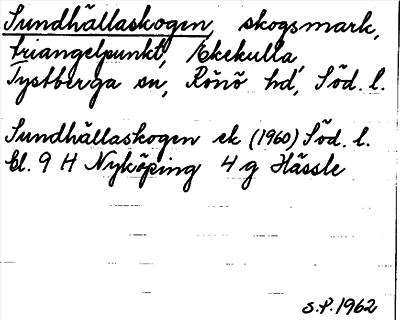 Sundhällaskogen, skogsmark,
triangelpunkt, Ekekulla,
Tystberga sn, Rönö hd, Söd. l.
Sundhällaskogen ek (1960) Söd. l.
bl. 9 H Nyköping 4 g Hässle
S.P. 1962